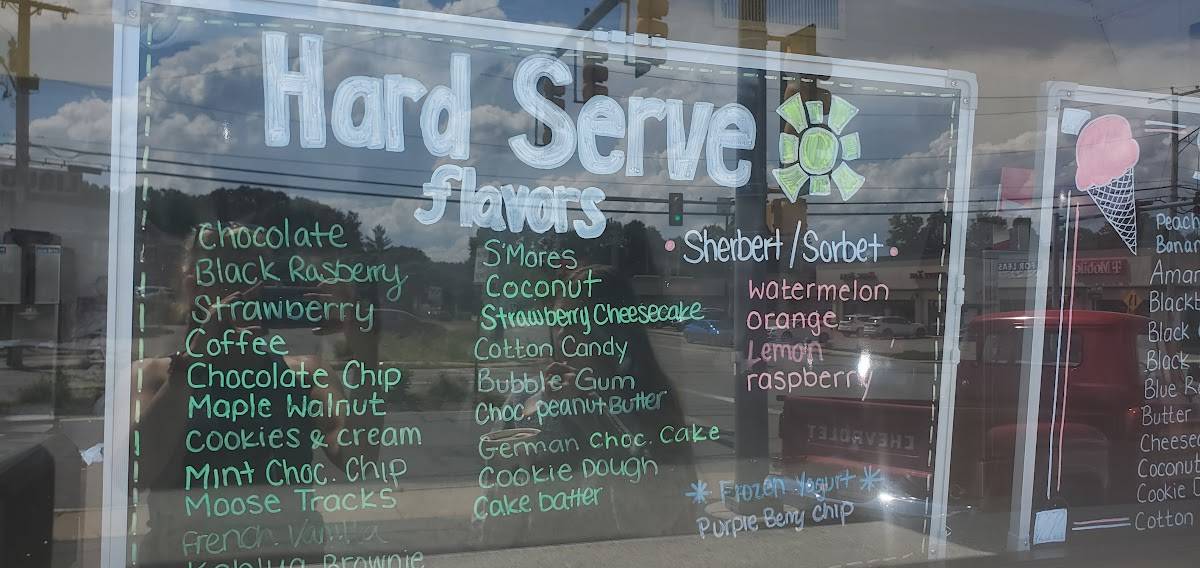 Hard Serve
flavors
Chocolate
Black Rasberry
Strawberry
Coffee
Chocolate Chip
Maple Walnut
Cookies & cream
Mint Choc. Chip
Moose Tracks
French Vanilla
Kahlua Brownie
S'Mores
Coconut
Strawberry Cheesecake
Cotton Candy
Bubble Gum
Choc. peanut Butter
German Choc. Cake
Cookie Dough
Cake batter
Sherbert / Sorbet
Watermelon
Orange
Lemon
raspberry
* Frozen Yogurt *
Purple Berry Chip
Peach
Black
Black
Black
Butter
Coconut
Cookie
Cotton
CHEVROLET
T-Mobile
FOR LEAS